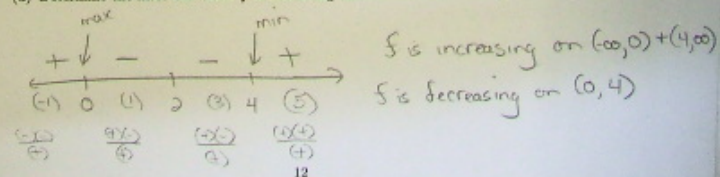 max min
+ − − +
(-1) 0 (1) 2 (3) 4 (5)
(-)(-) (+)(-) (+)(-) (+)(+)
(+) (+) (+) (+)
f is increasing on (-∞,0)+(4,∞)
f is decreasing on (0,4)
12